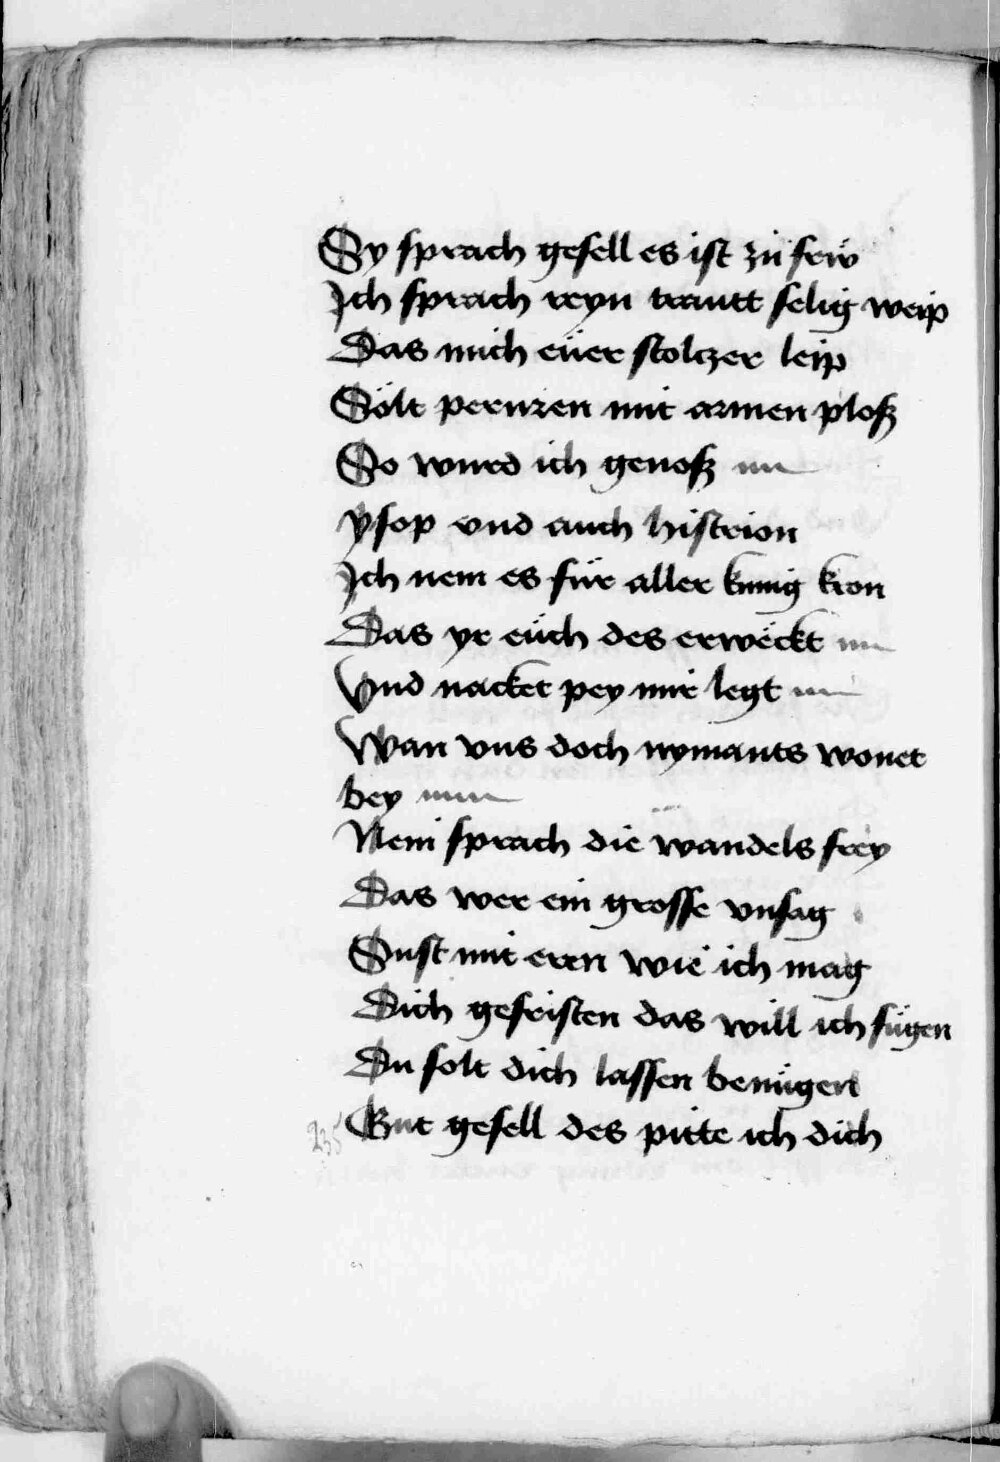 Sy sprach gesell es ist zü frw̎
Ich sprach reyn trautt selig weip
Das mich eüer stolczer leip
Sölt pernren mit armen ploß
So wurd ich genoß
ysop vnd auch histrion
Ich nem es für aller kunig kron
Das yr eüch des erweckt
Vnd nacket pey mir legt
Wan vns doch nymants wonet
bey
Nein sprach die wandels frey
Das wer ein grosse vnsag
Sust mit eren wie ich mag
Dich gefristen das will ich fügen
Du solt dich lassen benügen
Gut gesell des pitte ich dich
235